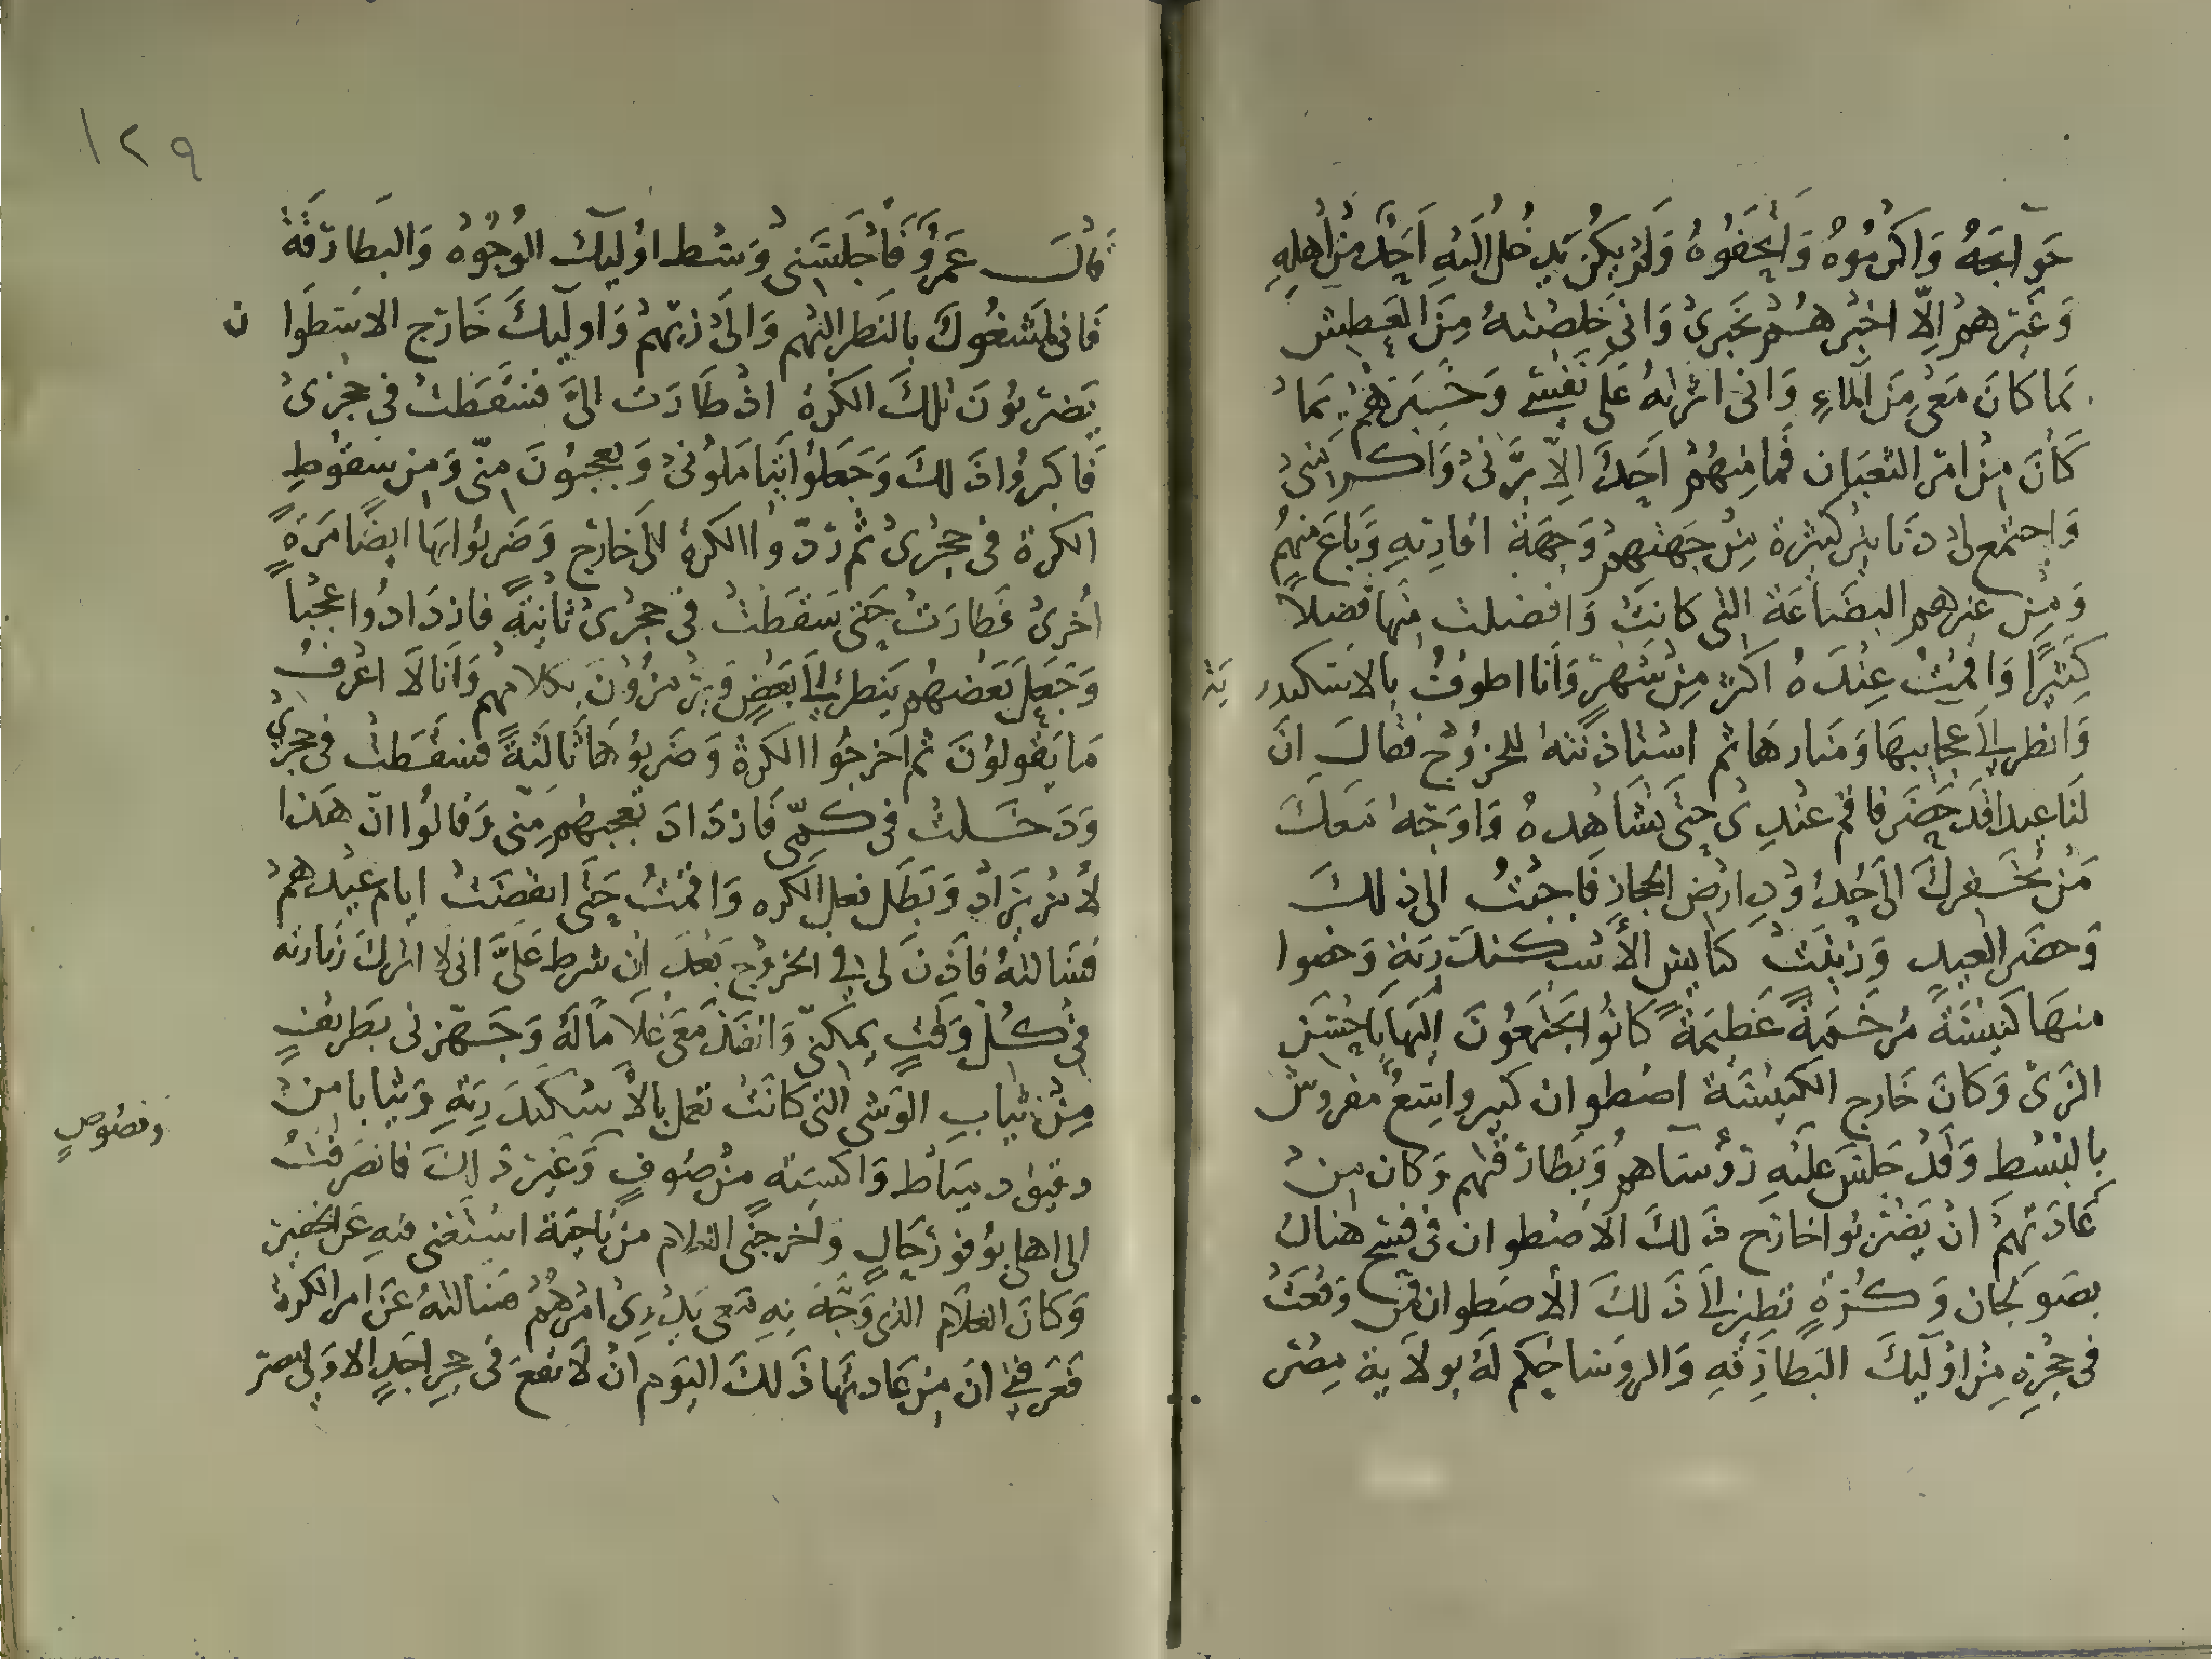 حَوآيجَهُ وَاكرمُوهُ وَاتحَفُوهُ وَلَم يَكُن يَدخُل الَيهِ اَحَدٌ مِن اَهلِهِ
وَغَيرهم اِلّا اخبرهُم بخَبَرى وَانى خَلصتهُ مِنَ العَطش
بَما كانَ مَعى مِنَ المآءِ وَانى اثرتهُ عَلَى نَفسى وَخَبَرهُم بمَا
كَانَ مِن امر الثعبَان فما مِنهُم اَحَدٌ اِلّا بَرَّنى وَاكرمنى
وَاجتمع لى دَنانير كثيرة مِن جهَتهم وَجهَة اقاربهِ وَبَاعَ مِنهُم
وَمِن غيرهم البضَاعَة التى كانَت وَافضلت مِنها فضلاً
كثيرًا وَاقمتُ عِندَهُ اكثر مِن شَهر وَانا اطوفُ بالاسكندر يَة
وَانظر الى عجايبهَا وَمَنارهَا ثم استاذنتهُ للخرُوج فقالَ انَ
لنَا عيدا قَد حَضَر فاقم عندى حَتى تشَاهِدهُ وَاوَجّه مَعكَ
مَن يُخفركَ الى حُدُودِ ارض الحجاز فَاجبتُ الى ذلكَ
وَحضَر العِيد وَزُينَت كنايس الأسكندَريَة وَخصوا
منهَا كنيسَةً مُرخمَةً عَظيمَةً كانُوا يجتمعُونَ اليهَا باحسَن
الزىّ وَكانَ خَارج الكنيسَة اصطوان كبير واسعٌ مفروش
بالبسُط وَقَد جَلسَ علَيهِ رُؤسَآهم وَبَطارقتهم وَكان مِن
عَادَتهمُ ان يَضربُوا خارج ذَلكَ الاصطوان فى فسيح هناك
بصَوَلجان وَكُرةٍ تطير الى ذَلكَ الأصطوان فمن وَقعَت
فى حجرِهِ مِن اوليكَ البَطارقهِ وَالروسَا حُكم لَهُ بولاية مِصر
١٢٩
قالَ عَمرو فَاجلسَنى وَسط اوليك الوُجُوه وَالبَطارقَة
فَانى لمَشغُول بالنَظر اليهم وَالى زيّهمُ وَاوليكَ خَارج الاسطوا ن
يَضربُونَ تلكَ الكُرة اذ طارَت الىَّ فسَقَطت فى حجرى
فَاكبرُوا ذَلكَ وَجَعلوا يَتاملونى وَيعجبُونَ مِنّى وَمِن سقوطِ
الكرة فى حِجرى ثم رَدّوا الكرة الى خارج وَضَربُوا بهَا ايضًا مَرَةً
اُخرى فَطارَت حَتى سَقَطَت فى حجرى ثانيَةً فازدَادُوا عجبًا
وَجَعلَ بَعضهُم يَنظر الى بَعضٍ وَيرمزُونَ بكلامهُم وَانا لَا اعرفُ
مَا يَقولونَ ثم اخرجُوا الكرة وَضَربُوهَا ثالثةً فسَقَطت فى حجرى
وَدَخَلت فى كمّى فَازدَادَ تعجبهُم مِنى وَقالُوا انّ هَذا
لأمر يرَادُ وَبَطَل فعل الكره وَاقمتُ حَتَى انقضَتُ ايام عيدهمُ
فسَالتهُ فَاَذِنَ لى فى الخرُوج بَعدَ ان شرط عَلَىَّ انى لا اترك زيَارته
فى كُل وَقتٍ يمكننّى وَانفَذَ مَعى غلَامًا لَهُ وَجَهزنى بطَرايف
مِن ثيابِ الوَشى التى كانَت تعمل بالأسكندَريَةِ وَثيابا مِن
دقيق دميَاط وَاكسِيَة مِن صُوفٍ وَغَير ذلكَ فانصَرفتُ
ونصُوصٍ
الى اهلى بوُفور حَالٍ وَاخرجَنى الغلام مِن نَاحيَة استَغنى فيهِ عَن الخفير
وَكانَ الغلَام الذى وَجَّهَ بهِ مَعى يَدرِى امرَهُم فسَالتهُ عَن امر الكرة
فعَرفنى انَ مِن عَادَتهَا ذَلكَ اليَوم ان لَا تقعَ فى حِجرِ احَدٍ الا وَلى مصر